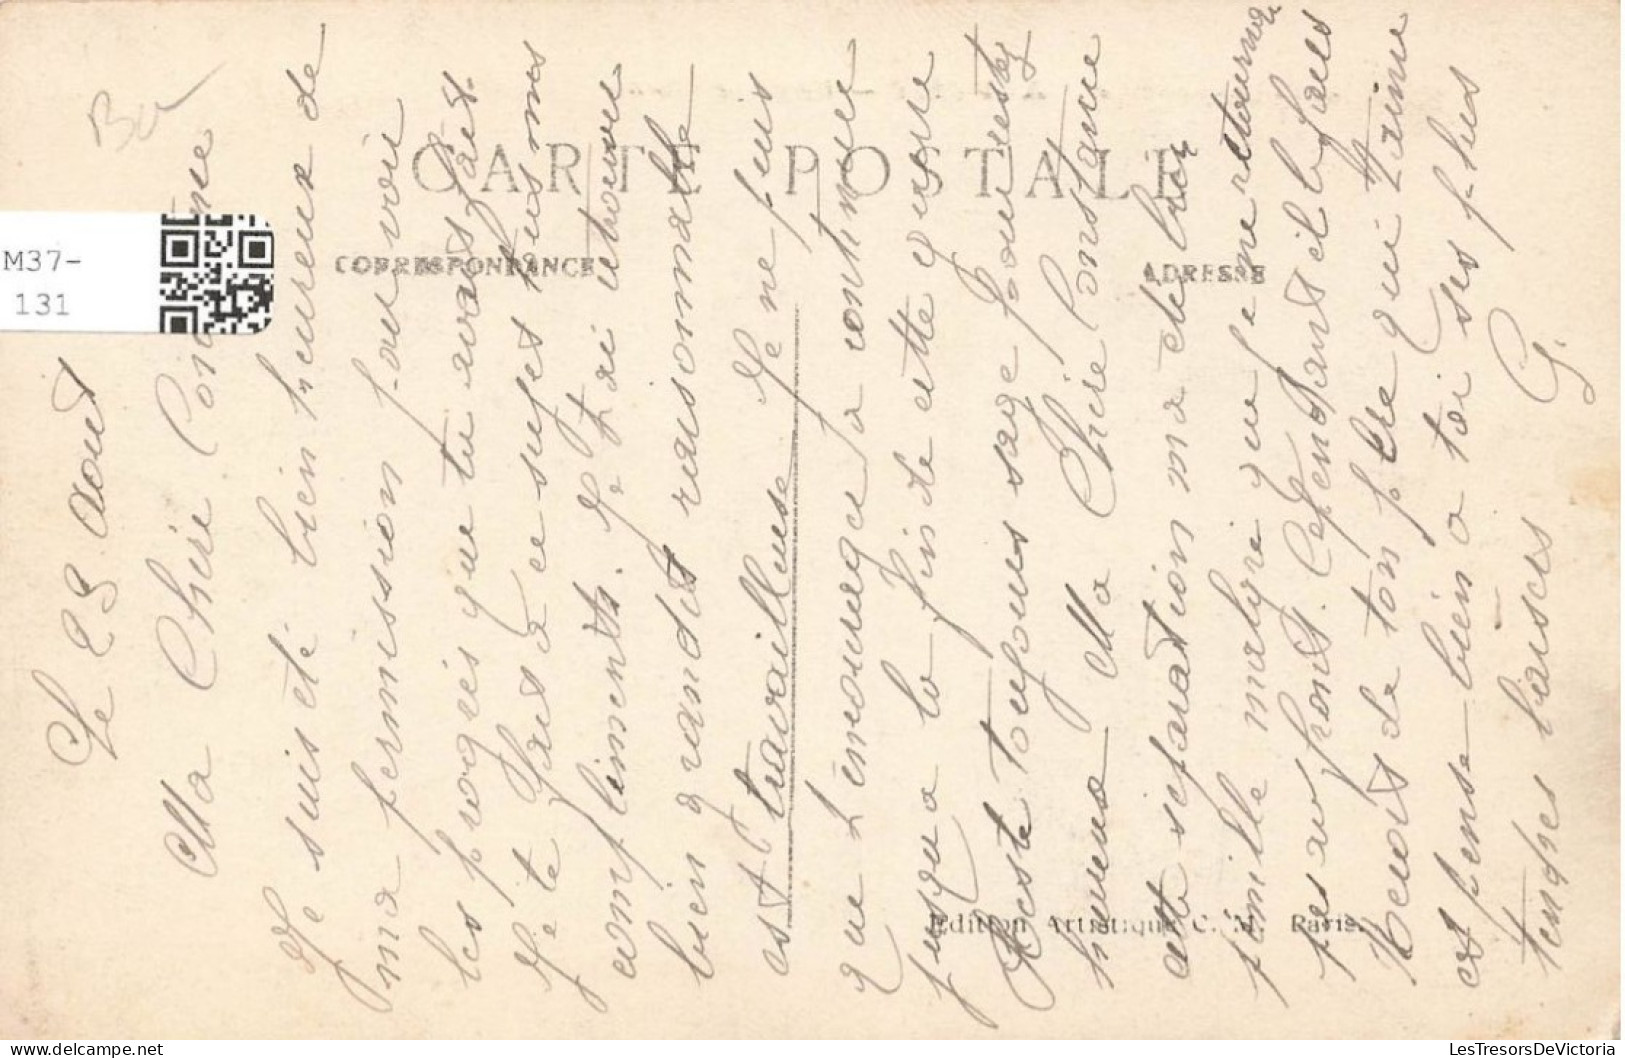 Le 28 Aout
Ma Chère Constance
Je suis été bien heureux de
ma permission pour voir
les progrès que tu avais fait.
Je te fait à ce sujet tous mes
compliments. Je t'ai trouvé
bien grandit raisonnable
est travailleuse Je ne puis
que t'encourager à continuer
jusqu'a la fin de cette guerre
Reste toujours sage pour rester
Ma Chère Constance
cette séparation ma été bien
pénible malgré que je me retournez
pas au front. Cependant il le faut
Reçois de ton père qui t'aime
et pense bien a toi ses plus
tendres baisers
G.
CARTE POSTALE
CORRESPONDANCE
ADRESSE
Edition Artistique C. M. Paris.
M37-
131
LesTresorsDeVictoria
delcampe.net